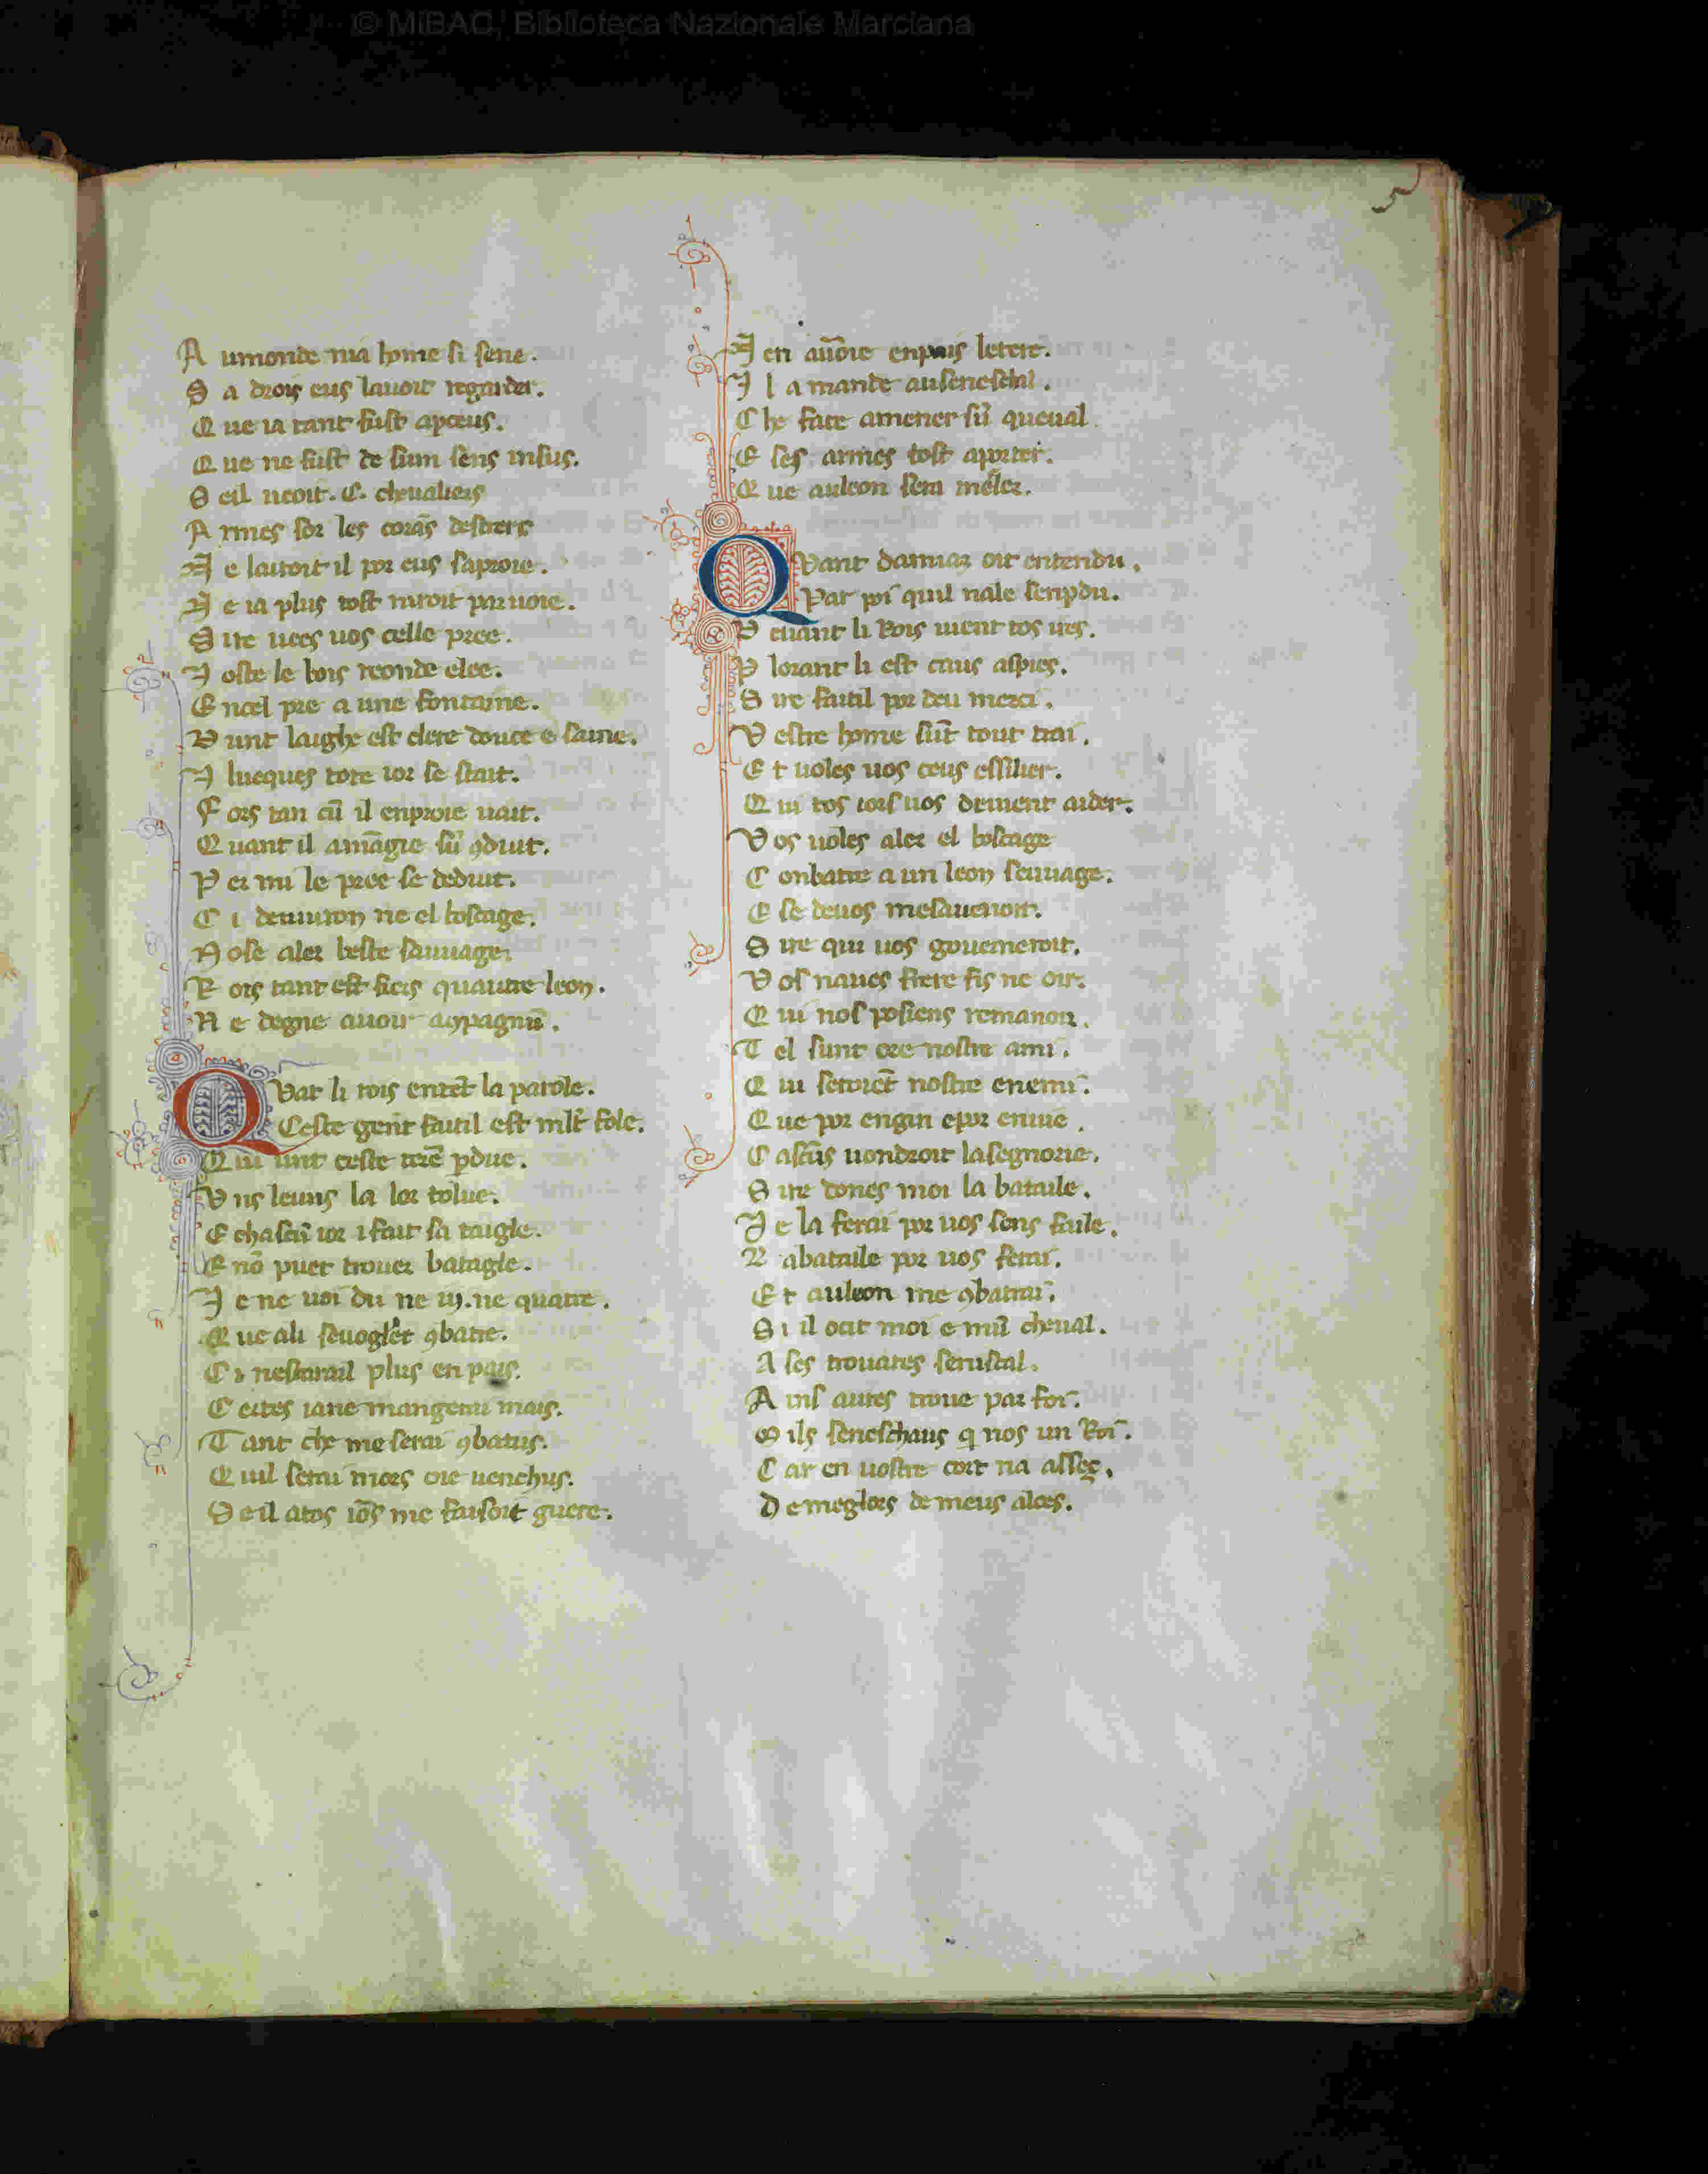 © MiBAC, Biblioteca Nazionale Marciana
5
A umonde nia home si sene.
S a drois eus lauoit regarder.
Q ue ia tant fust aperceus.
Q ue ne fust de sum sens insus.
S eil ueoit .C. cheualiers
A rmes sor les corãs destrers
N e lairoit il por eus saproie.
N e ia plus tost niroit par uoie.
S ire uees uos celle pree.
I oste le bois reonde elee.
E ncel pre a une fontaine.
D unt laighe est clere douce e saine.
I lueques tote ior se stait.
F ors tan cũ il enproie uait.
Q uant il a mãgie sũ ꝯduit.
P er mi le pree se deduit.
C i deuiuron ne el boscage.
N ose aler beste sauuage.
R ois tant est fiers quautre leon.
N e degne auoir ꝯpagnũ.
Qvat li rois entẽt la parole.
Ceste gent faitil est mlt fole.
Q ui unt ceste tere pdue.
V ns leuns la lor tolue.
E chascũ ior i fait sa taigle.
E nõ puet trouer bataigle.
I e ne uoi du ne iij. ne quatre.
Q ue ali seuoglẽt ꝯbatre.
C i nestarail plus en pais.
C ertes iane mangerai mais.
T ant che me serai ꝯbatus.
Q uil serai mors oie uenchus.
S eil atos iors me faisoit guere.
I en auõie enpais letere.
I l a mande ausenescial.
C he face amener sũ queual
E ses armes tost aporter.
Q ue auleon sera mesler.
Qvant damaz oit entendu.
Par poi quil nale senpdu.
D euant li Rois uient tos ues.
P lorant li est caus aspies.
S ire faitil por deu merci.
V estre home sũt tout trai.
E t uoles uos ceus essilier.
Q ui tos iors uos deuient aider.
V os uoles aler el boscage
C onbatre a un leon seuuage.
E se deuos mesauenoit.
S ire qui uos gouerneroit.
V os naues frere fis ne oir.
Q ui nos posiens remanoir.
T el sunt ore nostre ami.
Q ui seroiẽt nostre enemi.
Q ue por engin epor enuie.
C ascũs uondroit lasegnorie.
S ire dones moi la bataile.
I e la ferai por uos sens faile.
L abataile por uos ferai.
E t auleon me ꝯbatrai.
S i il ocit moi e mũ cheual.
A ses trouares seruscal.
A ins autes troue par foi.
M ils seneschaus q nos un Roi.
C ar en uostre cort na asses.
D e meglors de meus ales.